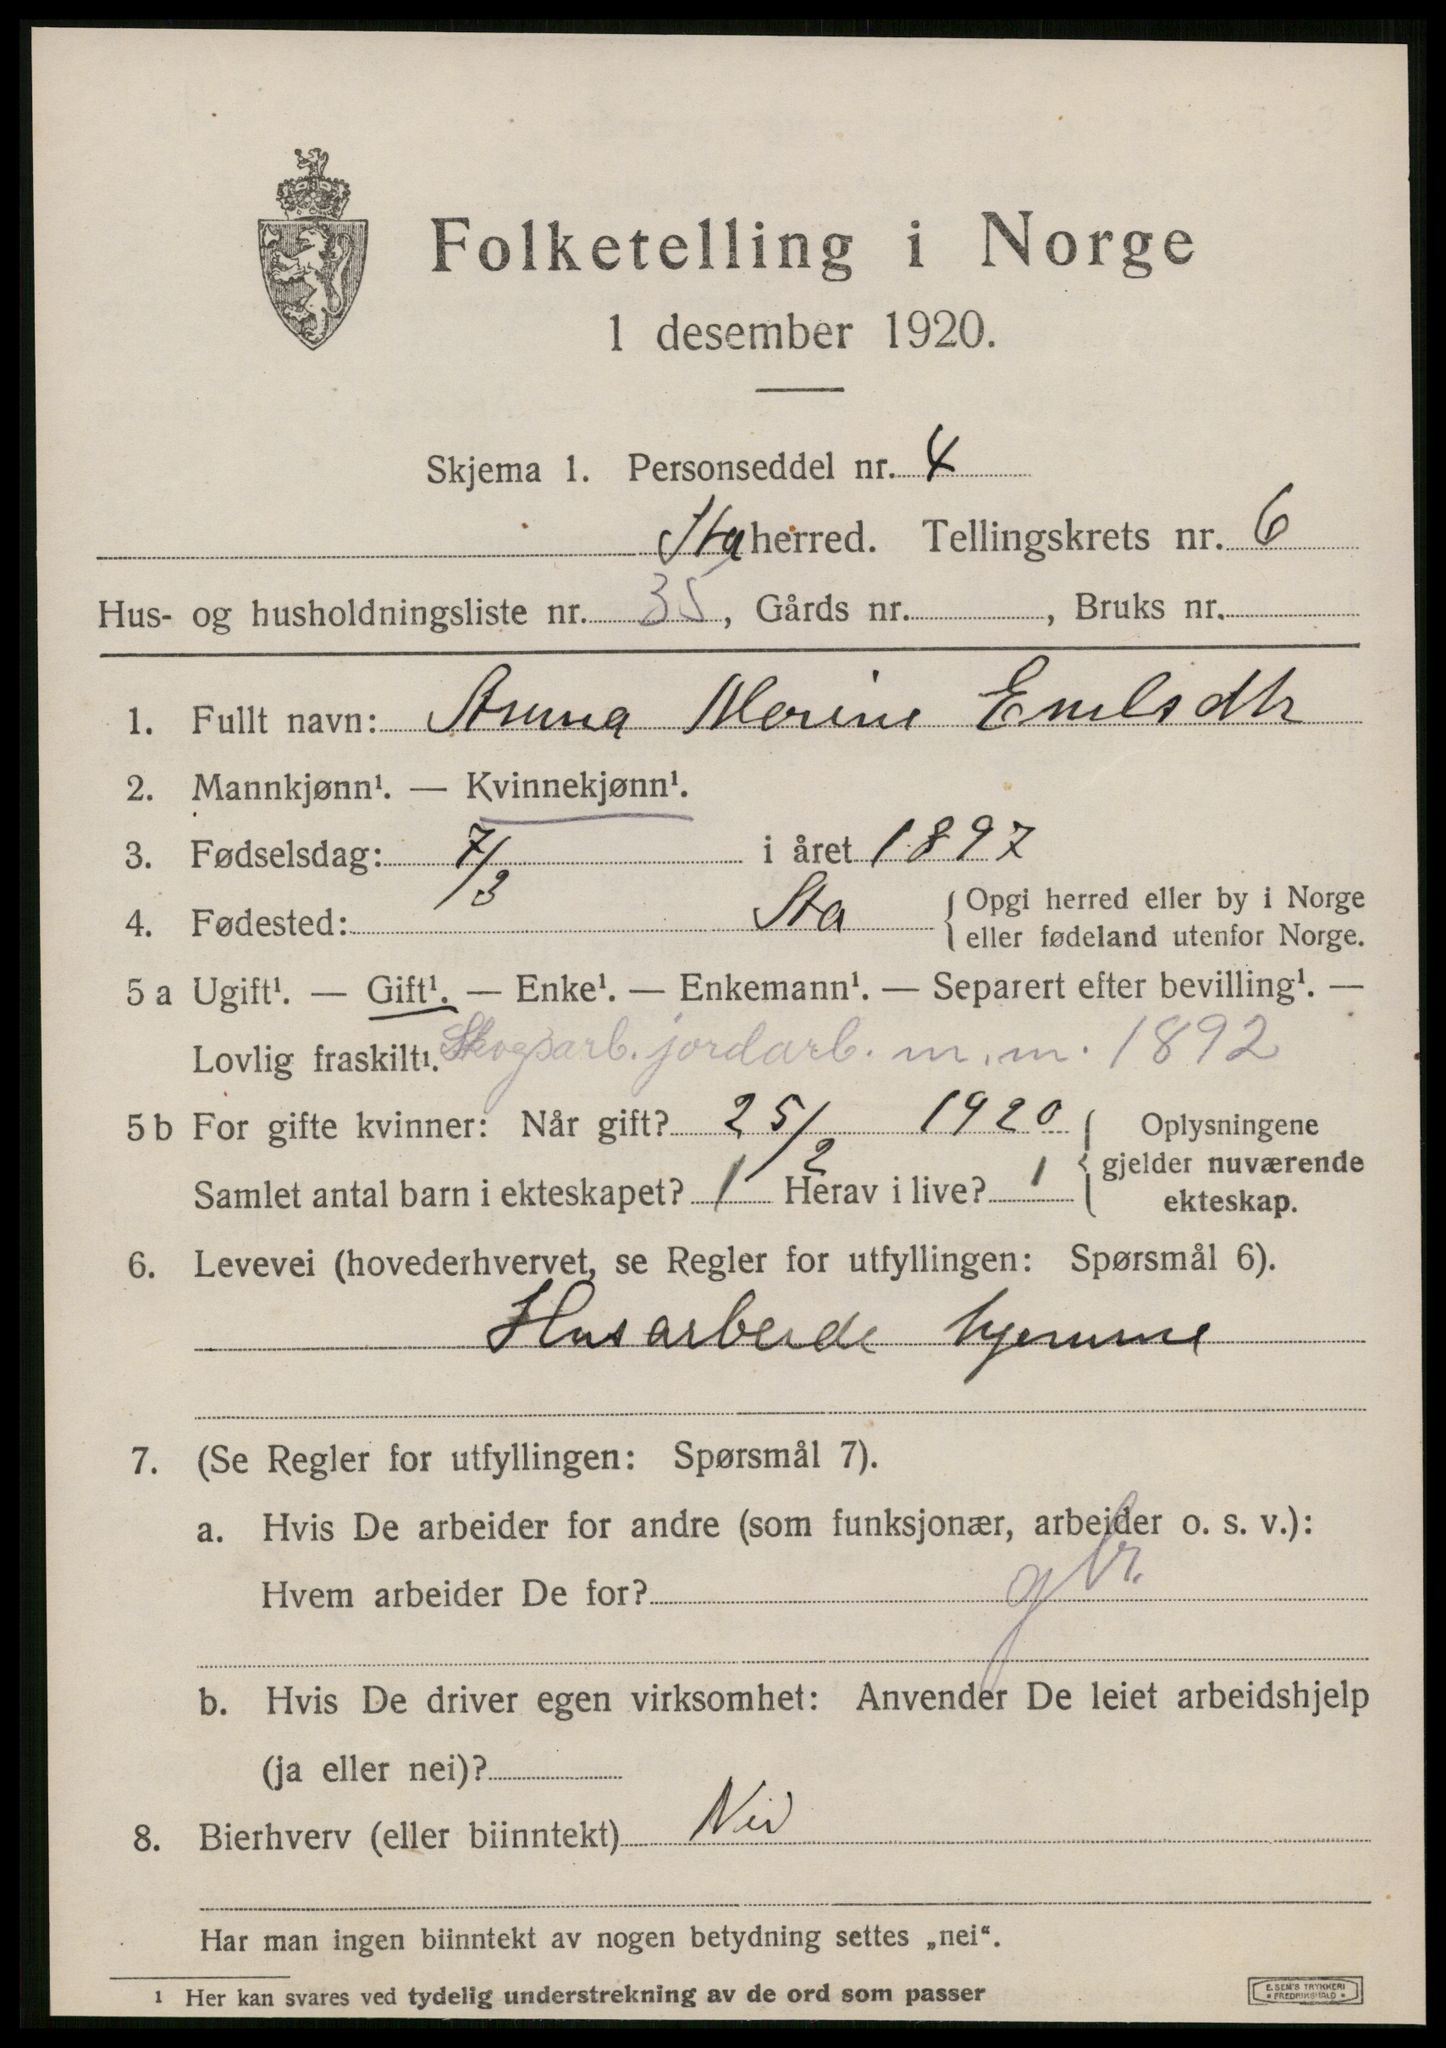 Folketelling i Norge
1 desember 1920.
Skjema 1. Personseddel nr. 4
Sta herred. Tellingskrets nr. 6
Hus- og husholdningsliste nr. 35, Gårds nr. , Bruks nr.
1. Fullt navn: Anna Marine Emilsdtr
2. Mannkjønn¹. — Kvinnekjønn¹.
3. Fødselsdag: 7/3 i året 1897
4. Fødested: Sta { Opgi herred eller by i Norge
eller fødeland utenfor Norge.
5 a Ugift¹. — Gift¹. — Enke¹. — Enkemann¹. — Separert efter bevilling¹. —
Lovlig fraskilt¹. Skogsarb. jordarb. m. m. 1892
5 b For gifte kvinner: Når gift? 25/2 1920 { Oplysningene
gjelder nuværende
Samlet antal barn i ekteskapet? 1 Herav i live? 1
ekteskap.
6. Levevei (hovederhvervet, se Regler for utfyllingen: Spørsmål 6).
Husarbeide hjemme
7. (Se Regler for utfyllingen: Spørsmål 7).
a. Hvis De arbeider for andre (som funksjonær, arbeider o. s. v.):
Hvem arbeider De for? gbr.
b. Hvis De driver egen virksomhet: Anvender De leiet arbeidshjelp
(ja eller nei)?
8. Bierhverv (eller biinntekt) Nei
Har man ingen biinntekt av nogen betydning settes „nei“.
¹ Her kan svares ved tydelig understrekning av de ord som passer
E. SEM'S TRYKKERI
FREDRIKSHALD